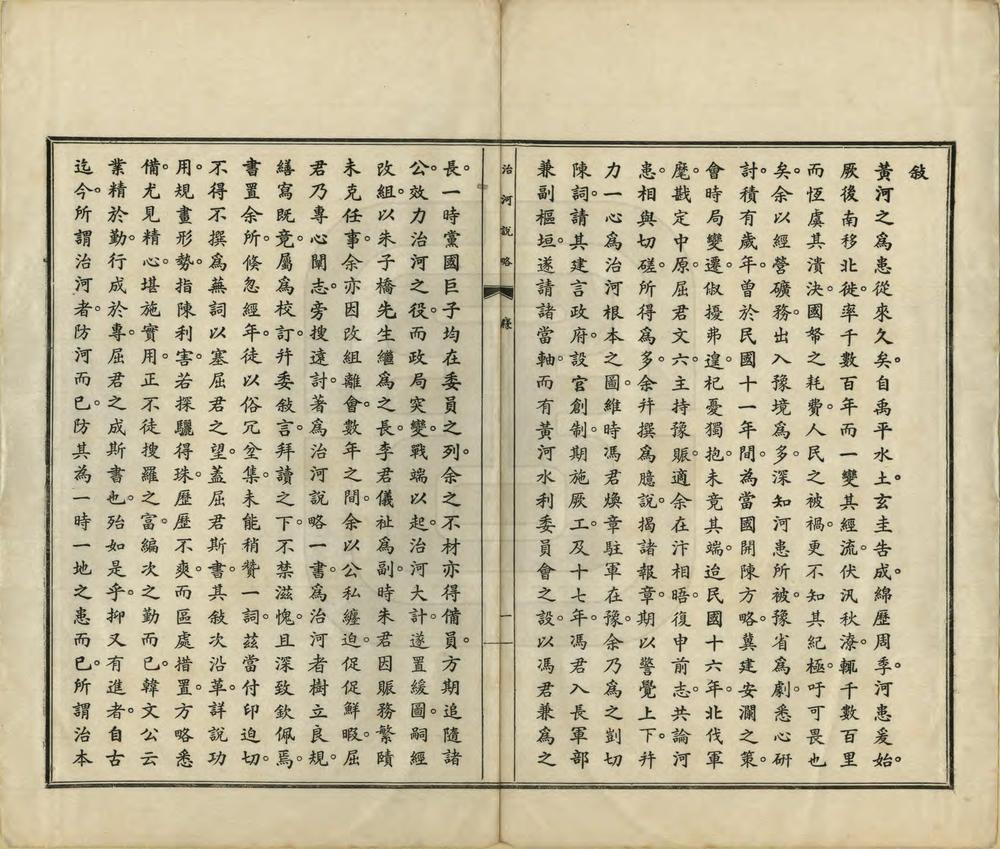 敍
黃河之爲患從來久矣。自禹平水土。玄圭告成。綿歷周季。河患爰始。
厥後南移北徙。率千數百年而一變其經流。伏汎秋潦。輒千數百里
而恆虞其潰決。國帑之耗費。人民之被禍。更不知其紀極。吁可畏也
矣。余以經營礦務。出入豫境爲多。深知河患所被。豫省爲劇。悉心硏
討。積有歲年。曾於民國十一年間。為當國開陳方略。冀建安瀾之策。
會時局變遷。俶擾弗遑。杞憂獨抱。未竟其端。迨民國十六年。北伐軍
麾。戡定中原。屈君文六。主持豫賑。適余在汴相晤。復申前志。共論河
患。相與切磋。所得爲多。余幷撰爲臆說。揭諸報章。期以警覺上下。幷
力一心。爲治河根本之圖。維時馮君煥章駐軍在豫。余乃爲之剴切
陳詞。請其建言政府。設官創制。期施厥工。及十七年。馮君入長軍部
兼副樞垣。遂請諸當軸。而有黃河水利委員會之設。以馮君兼爲之
治河說略
敍
一
長。一時黨國巨子。均在委員之列。余之不材。亦得備員。方期追隨諸
公。效力治河之役。而政局突變。戰端以起。治河大計。遂置緩圖。嗣經
改組。以朱子橋先生繼爲之長。李君儀祉爲副。時朱君因賑務繁賾
未克任事。余亦因改組離會。數年之間。余以公私纏迫。促促鮮暇。屈
君乃專心闡志。旁搜遠討。著爲治河說略一書。爲治河者樹立良規。
繕寫既竟。屬爲校訂。幷委敍言。拜讀之下。不禁滋愧。且深致欽佩焉。
書置余所。倏忽經年。徒以俗冗坌集。未能稍贊一詞。茲當付印迫切。
不得不撰爲蕪詞。以塞屈君之望。蓋屈君斯書。其敍次沿革。詳說功
用。規畫形勢。指陳利害。若探驪得珠。歷歷不爽。而區處措置。方略悉
備。尤見精心。堪施實用。正不徒搜羅之富。編次之勤而已。韓文公云
業精於勤。行成於專。屈君之成斯書也。殆如是乎。抑又有進者。自古
迄今。所謂治河者。防河而已。防其為一時一地之患而已。所謂治本